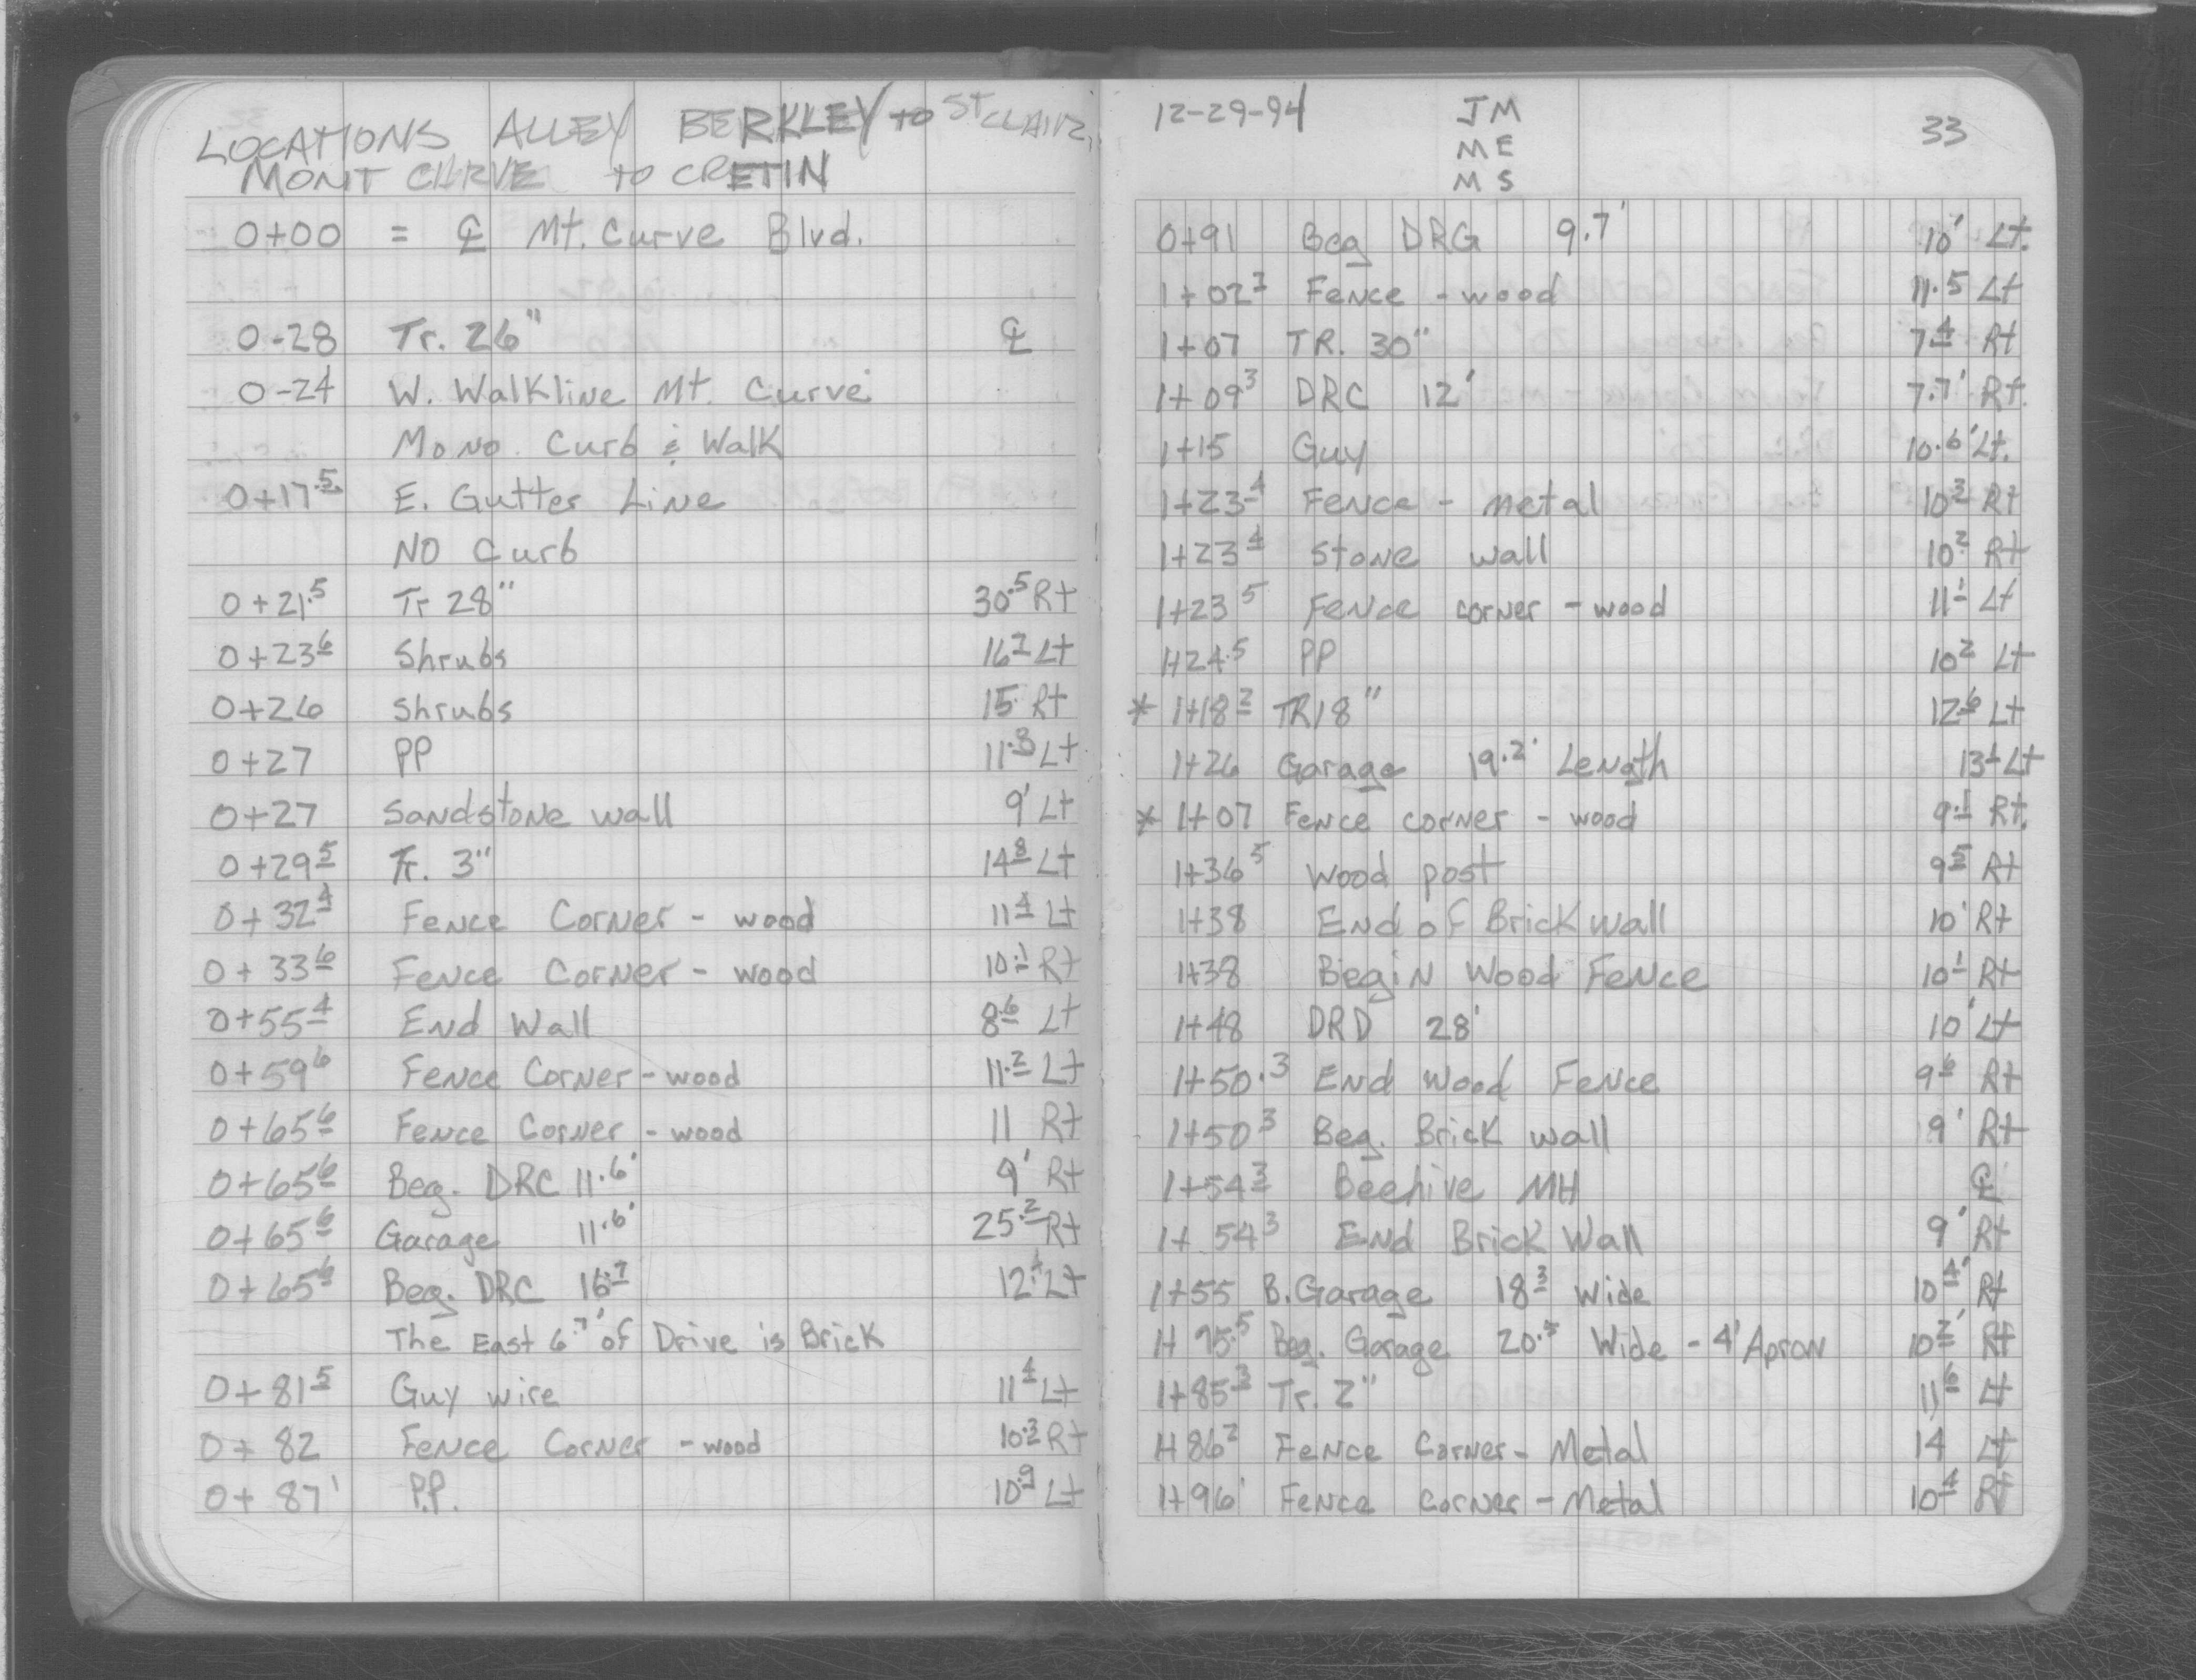 LOCATIONS ALLEY BERKLEY to ST CLAIR,
MONT CURVE TO CRETIN
0+00 = ℄ Mt. Curve Blvd.
0-28 Tr. 26" ℄
0-24 W. Walkline Mt. Curve
Mono. Curb & Walk
0+17.5 E. Gutter Line
NO Curb
0+21.5 Tr 28" 30.5 Rt
0+23.6 Shrubs 16.2 Lt
0+26 Shrubs 15. Rt
0+27 PP 11.8 Lt
0+27 Sandstone wall 9' Lt
0+29.5 Tr. 3" 14.8 Lt
0+32.4 Fence Corner - wood 11.4 Lt
0+33.6 Fence Corner - wood 10.1 Rt
0+55.4 End Wall 8.6 Lt
0+59.6 Fence Corner - wood 11.2 Lt
0+65.6 Fence Corner - wood 11 Rt
0+65.6 Beg. DRC 11.6' 9' Rt
0+65.6 Garage 11.6' 25.2 Rt
0+65.6 Beg. DRC 16.7 Lt
The East 6.7' of Drive is Brick
0+81.5 Guy wire 11.4 Lt
0+82 Fence Corner - wood 10.2 Rt
0+87' P.P. 10.9 Lt
12-29-94 JM 33
ME
MS
0+91 Beg DRG 9.7' 10' Lt.
1+02 Fence - wood 11.5 Lt
1+07 TR. 30" 7.4 Rt
1+09.3 DRC 12' 7.7' Rt.
1+15 Guy 10.6' Lt.
1+23.4 Fence - metal 10.2 Rt
1+23.4 Stone wall 10.2 Rt
1+23.5 Fence corner - wood 11.1 Lt
1+24.5 PP 10.2 Lt
* 1+18.2 TR 18" 12.6 Lt
1+26 Garage 19.2' Length 13.1 Lt
* 1+07 Fence corner - wood 9.1 Rt.
1+36.5 Wood post 9.5 Rt
1+38 End of Brick Wall 10' Rt
1+38 Begin Wood Fence 10.1 Rt
1+48 DRD 28' 10' Lt
1+50.3 End Wood Fence 9.6 Rt
1+50.3 Beg. Brick wall 9' Rt
1+54.3 Beehive MH ℄
1+54.3 End Brick Wall 9' Rt
1+55 B. Garage 18.3 Wide 10.4' Rt
Beg. Garage Wide - 4' Apron 10.2' Rt
1+85.3 Tr. 2" 11.6 Lt
1+86.2 Fence Corner - Metal 14 Lt
1+96' Fence Corner - Metal 10.4 Rt